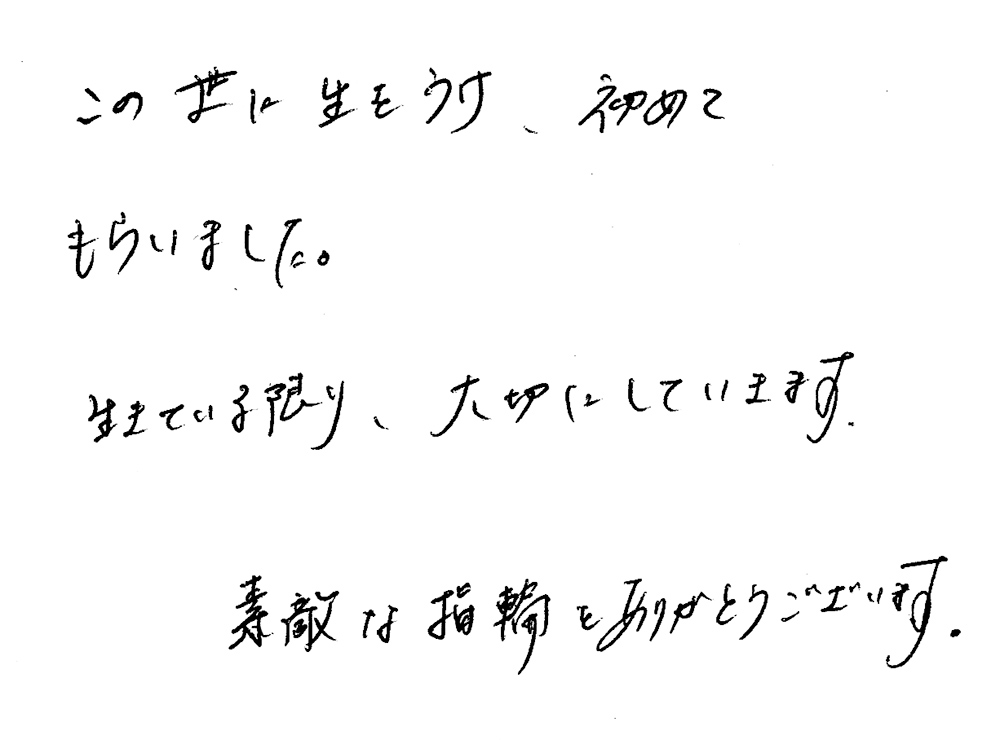 この世に生をうけ、初めて
もらいました。
生きている限り、大切にしていきます.
素敵な指輪をありがとうございます.